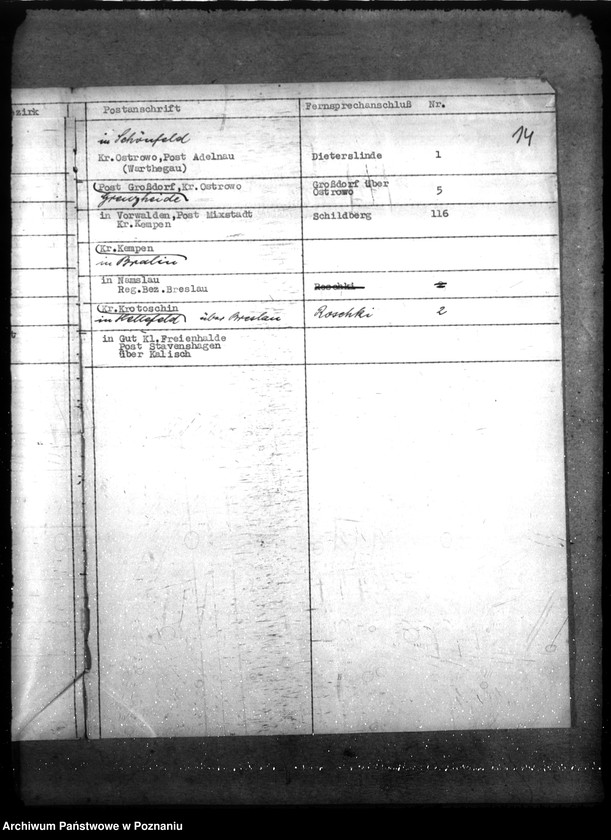 zirk
Postanschrift
Fernsprechanschluß Nr.
14
in Schönfeld
Kr.Ostrowo,Post Adelnau
(Warthegau)
Dieterslinde 1
(Post Großdorf,Kr.Ostrowo
Grenzheide)
Großdorf über
Ostrowo 5
in Vorwalden,Post Mixstadt
Kr.Kempen
Schildberg 116
(Kr.Kempen
in Bralin)
in Namslau
Reg.Bez.Breslau
Roschki 2
(Kr.Krotoschin
in Hellefeld) über Breslau
Roschki 2
in Gut Kl.Freienhalde
Post Stavenshagen
über Kalisch
Archiwum Państwowe w Poznaniu